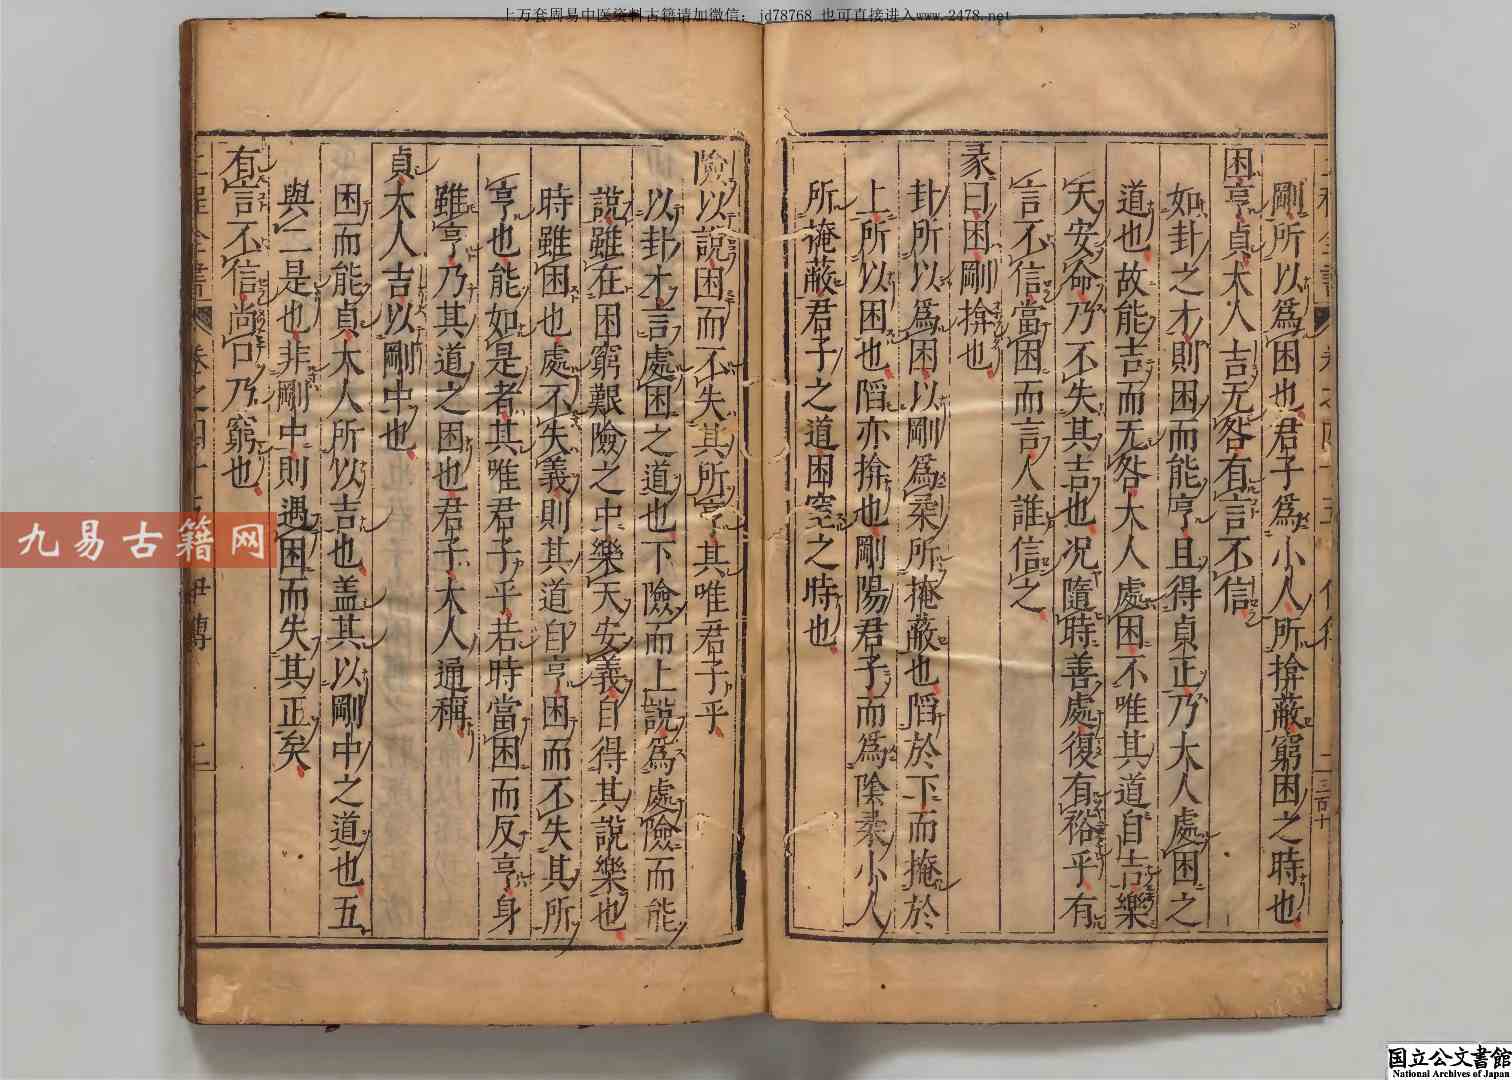 上万套周易中医资料古籍请加微信：jd78768 也可直接进入www.2478.net
剛所以爲困也君子爲小人所揜蔽窮困之時也
困亨貞大人吉无咎有言不信
如卦之才則困而能亨且得貞正乃大人處困之
道也故能吉而无咎大人處困不唯其道自吉樂
天安命乃不失其吉也况隨時善處復有裕乎有
言不信當困而言人誰信之
彖曰困剛揜也
卦所以爲困以剛爲柔所掩蔽也陷於下而掩於
上所以困也陷亦揜也剛陽君子而爲陰柔小人
所掩蔽君子之道困窒之時也
險以說困而不失其所亨其唯君子乎
以卦才言處困之道也下險而上說爲處險而能
說雖在困窮艱險之中樂天安義自得其說樂也
時雖困也處不失義則其道自亨困而不失其所
亨也能如是者其唯君子乎若時當困而反亨身
雖亨乃其道之困也君子大人通稱
貞大人吉以剛中也
困而能貞大人所以吉也盖其以剛中之道也五
與二是也非剛中則遇困而失其正矣
有言不信尚口乃窮也
九易古籍网
国立公文書館
National Archives of Japan